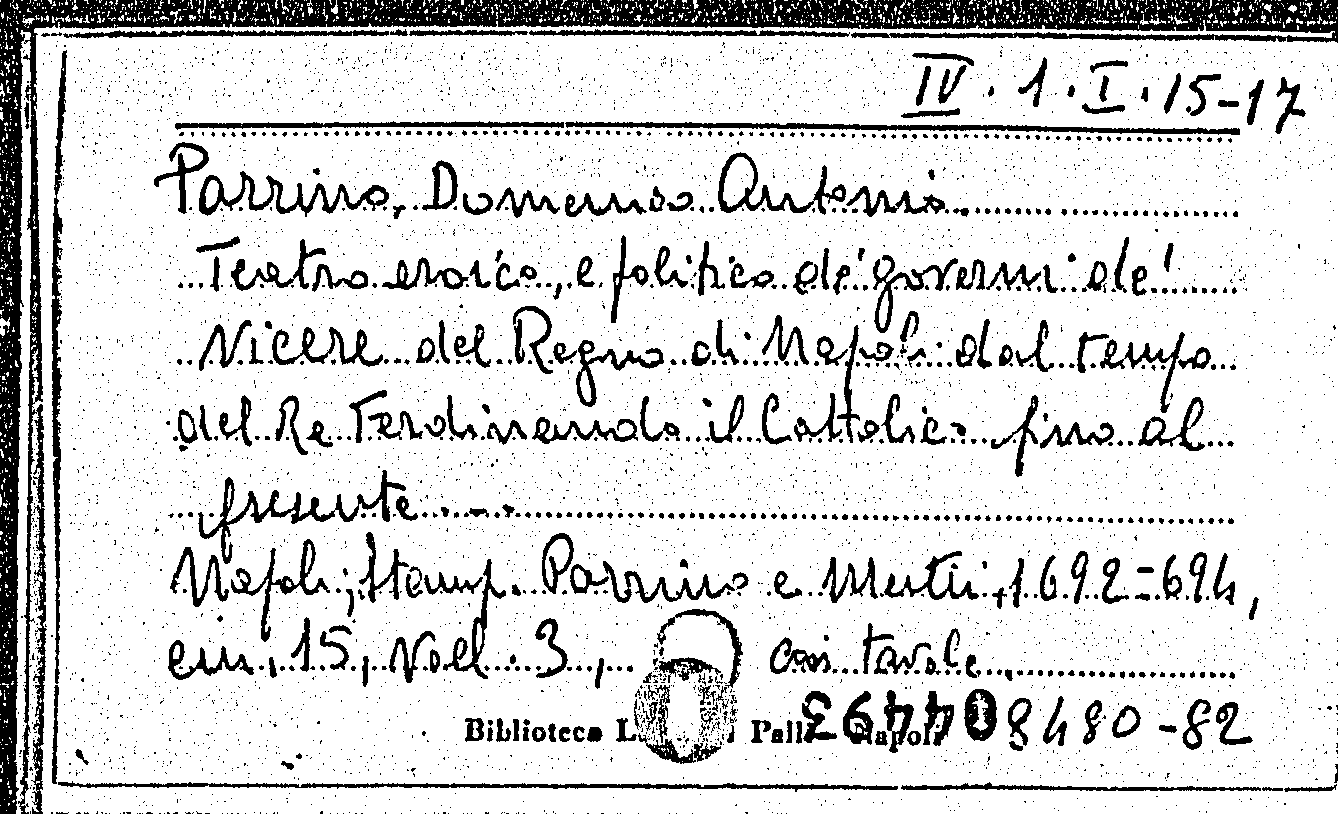 IV. 1. I. 15-17
Parrino, Domenico Antonio.
Teatro eroico, e politico de' governi de'
Vicere del Regno di Napoli dal tempo
del Re Ferdinando il Cattolico fino al
presente...
Napoli, Stamp. Parrino e Mutii, 1692-694,
cm. 15, Voll. 3, con tavole.
Biblioteca Napoli 8480-82